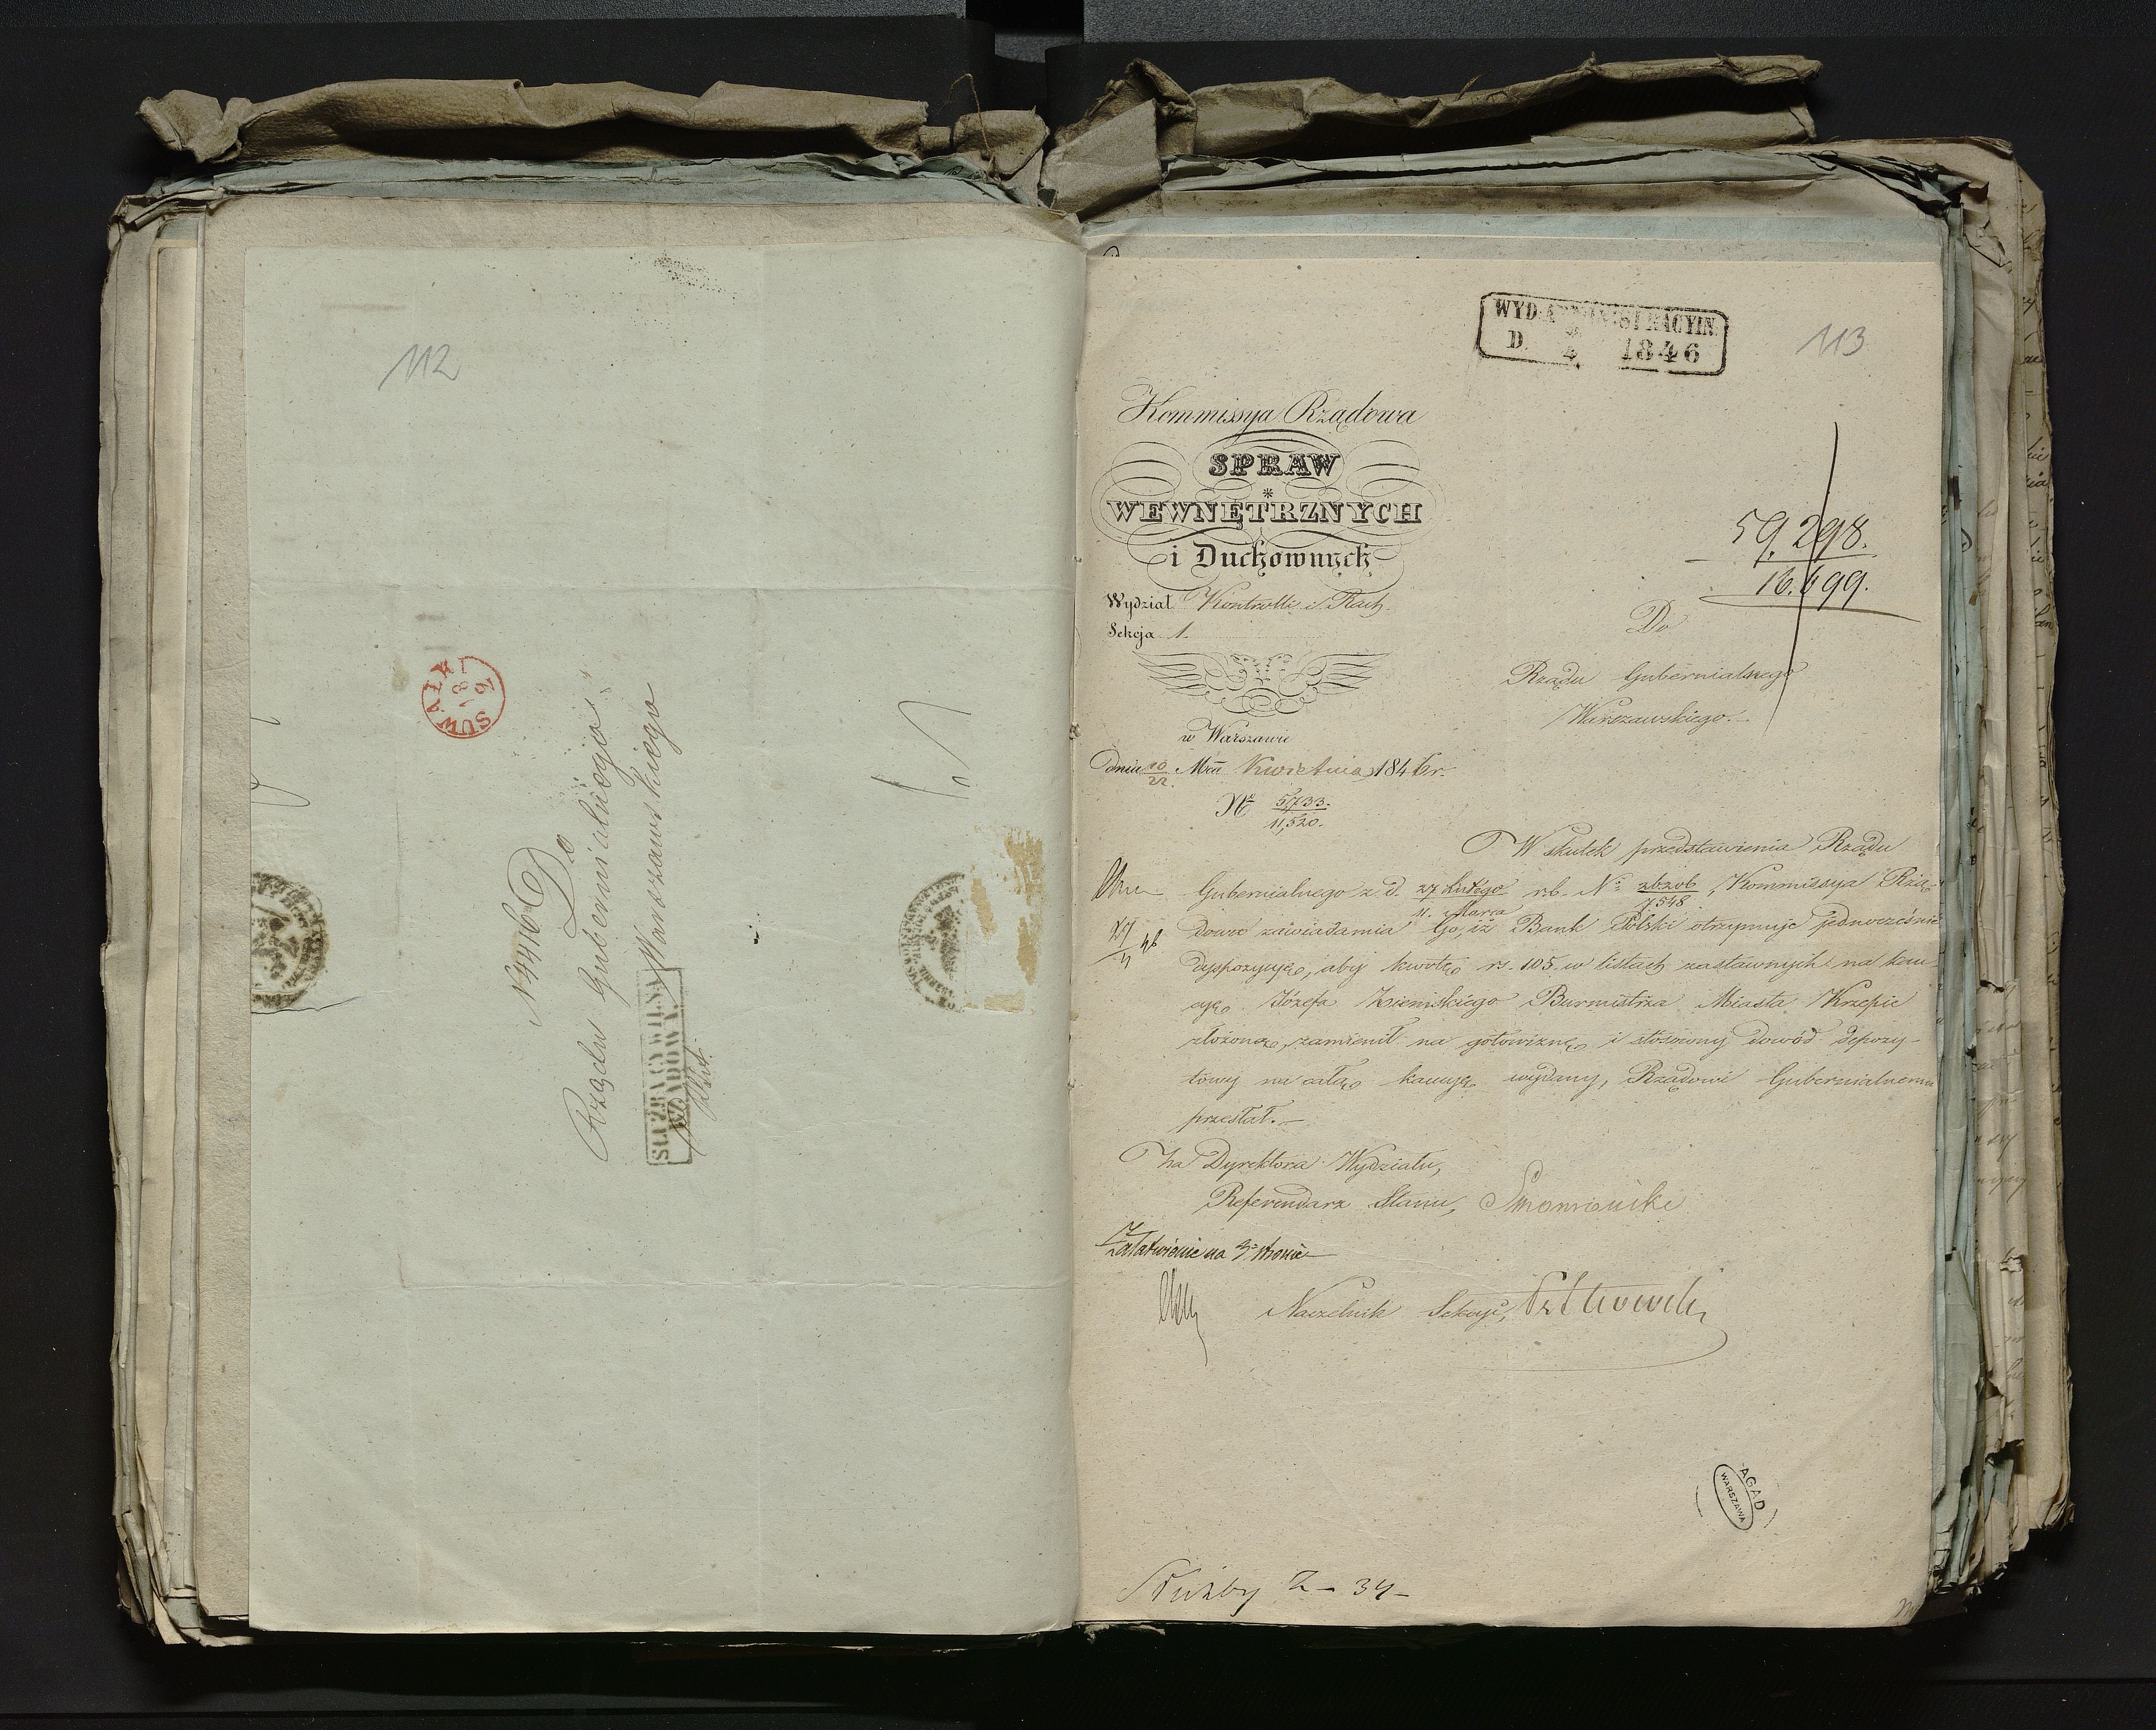 112
SUWAŁKI
18
N 4416
Do
Rządu Gubernialnego
Warszawskiego
SŁUŻBA CYWILNA
113
WYD. ADMINISTRACYIN.
D. 4 1846
Kommissya Rządowa
SPRAW
WEWNĘTRZNYCH
i Duchownych
Wydział Kontrolli i Rach.
Sekcja 1.
w Warszawie
dnia 10/22 Mca Kwietnia 1846 r.
Nr 5,733/11,520.
59,298.
16.699.
Do
Rządu Gubernialnego
Warszawskiego.
W skutek przedstawienia Rządu
Gubernialnego z d. 27 Lutego/11. Marca r.b. N: 26206/7548, Kommissya Rzą-
dowa zawiadamia Go, iż Bank Polski otrzymuje jednocześnie
dyspozycyę, aby kwotę rs. 105 w listach zastawnych na kau-
cyę Józefa Ziemskiego Burmistrza Miasta Krzepic
złożoną, zamienił na gotowiznę i stosowny dowód depozy-
towy na całą kaucyę wydany, Rządowi Gubernialnemu
przesłał.
Za Dyrektora Wydziału,
Referendarz Stanu,
Załatwienie na 3 stronie
Naczelnik Sekcyi,
AGAD
WARSZAWA
Służby Z - 34 -